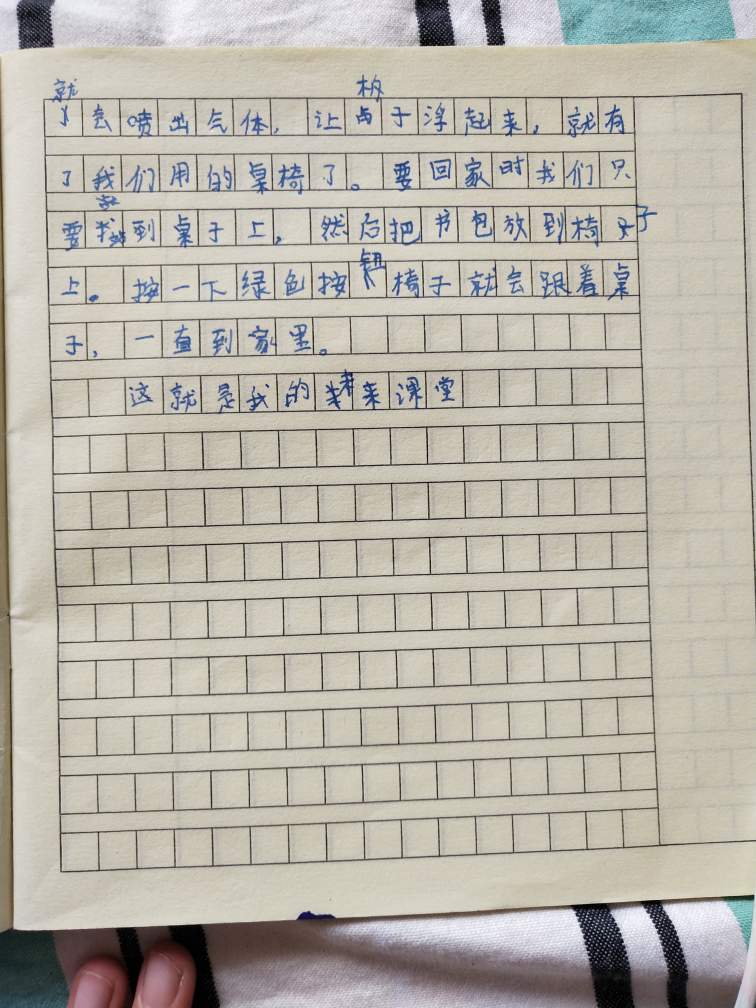 就会喷出气体，让板子浮起来，就有
了我们用的桌椅了。要回家时我们只
要站到桌子上，然后把书包放到椅子
上。按一下绿色按钮椅子就会跟着桌
子，一直到家里。
这就是我的未来课堂